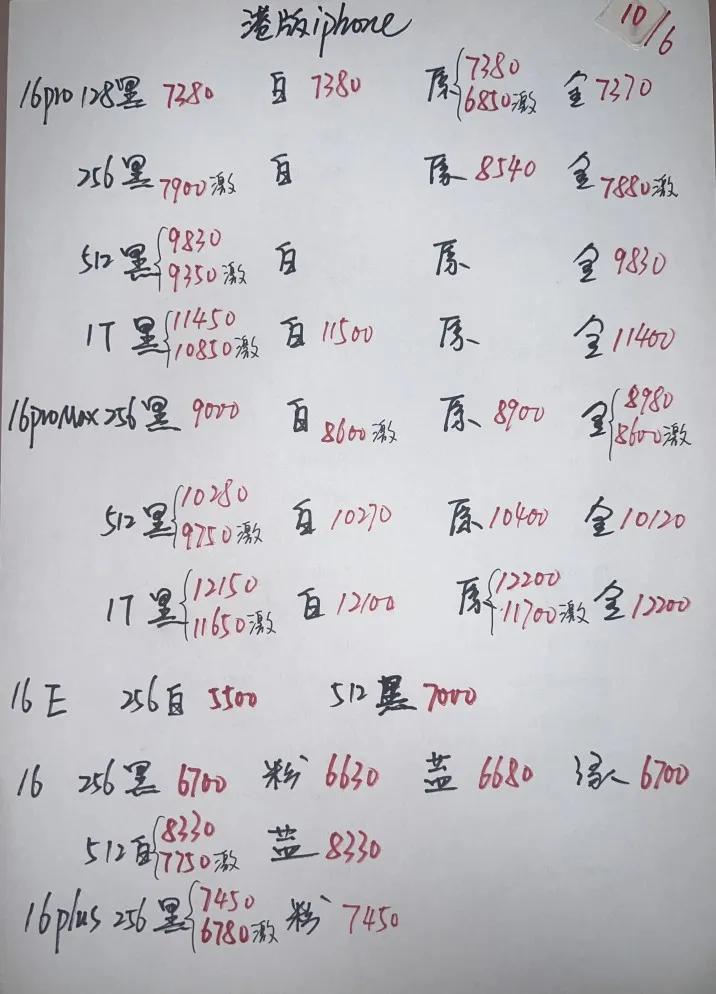 港版iphone 10/6
16pro 128黑 7380 白 7380 原 7380 6850激 金 7370
256黑 7900激 白 原 8540 金 7880激
512黑 9830 9350激 白 原 金 9830
1T 黑 11450 10850激 白 11500 原 金 11400
16proMax 256黑 9000 白 8600激 原 8900 金 8980 8600激
512黑 10280 9750激 白 10270 原 10400 金 10120
1T 黑 12150 11650激 白 12100 原 12200 11700激 金 12200
16E 256白 5500 512黑 7000
16 256黑 6700 粉 6630 蓝 6680 绿 6700
512白 8330 7750激 蓝 8330
16plus 256黑 7450 6780激 粉 7450